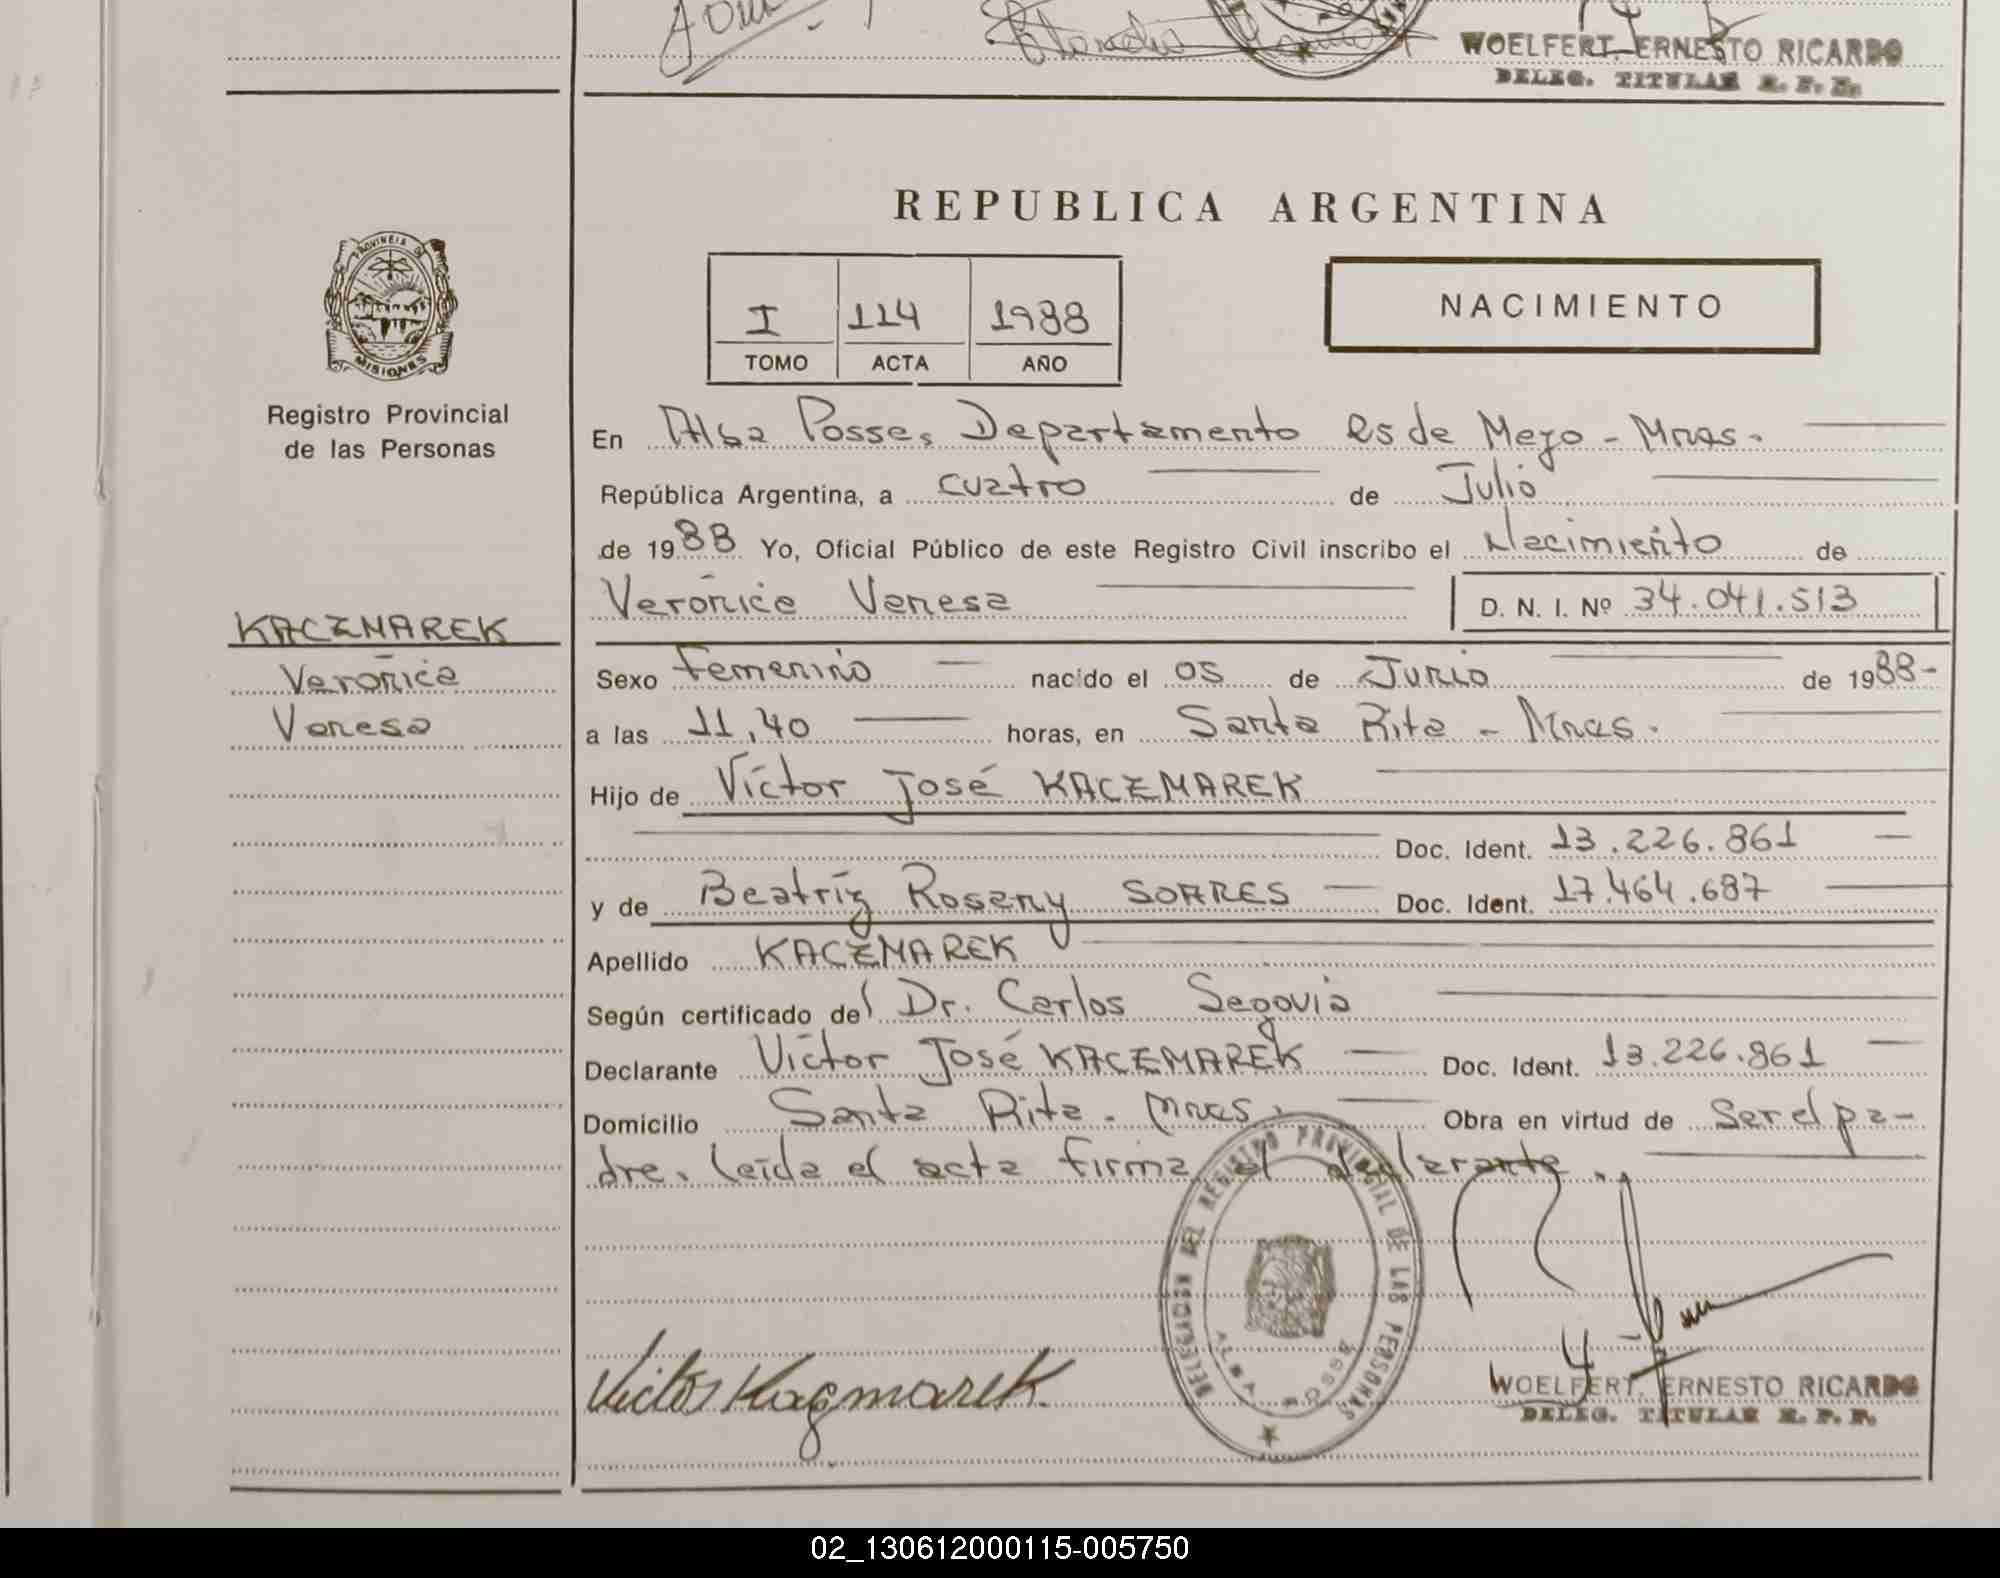 WOELFERT, ERNESTO RICARDO
DELEG. TITULAR R. P. P.
REPUBLICA ARGENTINA
PROVINCIA DE MISIONES
Registro Provincial
de las Personas
I 114 1988
TOMO ACTA AÑO
NACIMIENTO
En Alba Posse, Departamento 25 de Mayo - Mnes.
República Argentina, a cuatro de Julio
de 1988 Yo, Oficial Público de este Registro Civil inscribo el Nacimiento de
Verónica Vanesa D. N. I. Nº 34.041.513
KACZMAREK
Verónica
Vanesa
Sexo Femenino nacido el 05 de Junio de 1988-
a las 11,40 horas, en Santa Rita - Mnes.
Hijo de Víctor José KACZMAREK
Doc. Ident. 13.226.861
y de Beatríz Rosany SOARES Doc. Ident. 17.464.687
Apellido KACZMAREK
Según certificado del Dr. Carlos Segovia
Declarante Víctor José KACZMAREK Doc. Ident. 13.226.861
Domicilio Santa Rita - Mnes. Obra en virtud de ser el pa-
dre. Leída el acta firma el declarante.
DELEGACION DEL REGISTRO PROVINCIAL DE LAS PERSONAS
ALBA POSSE
Victor Kaczmarek
WOELFERT, ERNESTO RICARDO
DELEG. TITULAR R. P. P.
02_130612000115-005750